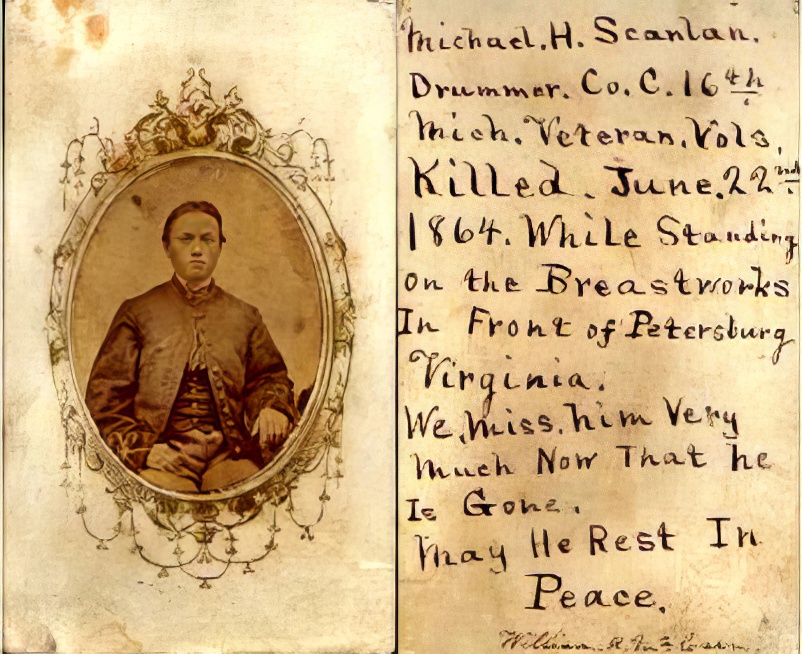 Michael. H. Scanlan.
Drummer. Co. C. 16th
Mich. Veteran. Vols.
Killed. June. 22nd
1864. While Standing
on the Breastworks
In Front of Petersburg
Virginia.
We. miss. him Very
much Now That he
Is Gone.
May He Rest In
Peace.
William R.